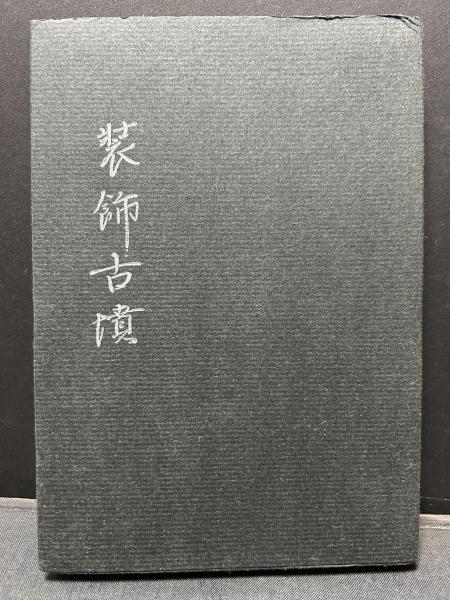 装飾古墳